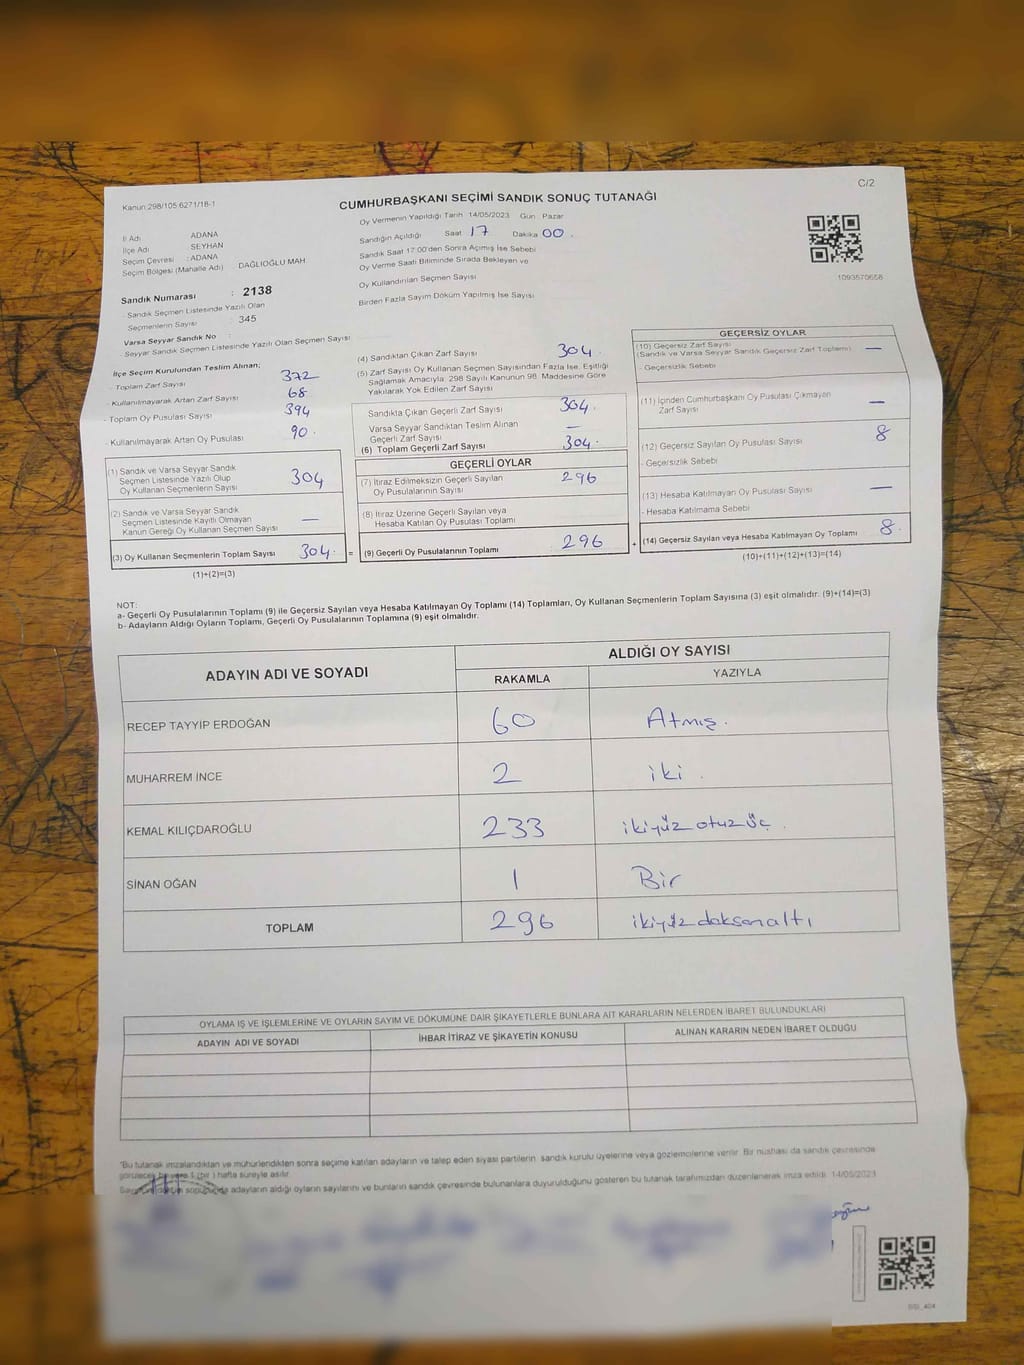 C/2
Kanun:298/105.6271/18-1
CUMHURBAŞKANI SEÇİMİ SANDIK SONUÇ TUTANAĞI
Oy Vermenin Yapıldığı Tarih 14/05/2023 Gün Pazar
İl Adı ADANA
İlçe Adı : SEYHAN
Seçim Çevresi : ADANA
Seçim Bölgesi (Mahalle Adı) DAĞLIOĞLU MAH.
Sandığın Açıldığı Saat 17 Dakika 00.
Sandık Saat 17:00'den Sonra Açılmış İse Sebebi
Oy Verme Saati Bitiminde Sırada Bekleyen ve
Oy Kullandırılan Seçmen Sayısı
Birden Fazla Sayım Döküm Yapılmış İse Sayısı
1093570658
Sandık Numarası : 2138
- Sandık Seçmen Listesinde Yazılı Olan
Seçmenlerin Sayısı : 345
Varsa Seyyar Sandık No :
- Seyyar Sandık Seçmen Listesinde Yazılı Olan Seçmen Sayısı:
İlçe Seçim Kurulundan Teslim Alınan;
- Toplam Zarf Sayısı 372
- Kullanılmayarak Artan Zarf Sayısı 68
- Toplam Oy Pusulası Sayısı 394
- Kullanılmayarak Artan Oy Pusulası 90.
(1) Sandık ve Varsa Seyyar Sandık
Seçmen Listesinde Yazılı Olup
Oy Kullanan Seçmenlerin Sayısı 304
(2) Sandık ve Varsa Seyyar Sandık
Seçmen Listesinde Kayıtlı Olmayan
Kanun Gereği Oy Kullanan Seçmen Sayısı —
(3) Oy Kullanan Seçmenlerin Toplam Sayısı 304. =
(1)+(2)=(3)
(4) Sandıktan Çıkan Zarf Sayısı 304.
(5) Zarf Sayısı Oy Kullanan Seçmen Sayısından Fazla İse, Eşitliği
Sağlamak Amacıyla 298 Sayılı Kanunun 98. Maddesine Göre
Yakılarak Yok Edilen Zarf Sayısı
Sandıkta Çıkan Geçerli Zarf Sayısı 304.
Varsa Seyyar Sandıktan Teslim Alınan
Geçerli Zarf Sayısı —
(6) Toplam Geçerli Zarf Sayısı 304.
GEÇERLİ OYLAR
(7) İtiraz Edilmeksizin Geçerli Sayılan
Oy Pusulalarının Sayısı 296
(8) İtiraz Üzerine Geçerli Sayılan veya
Hesaba Katılan Oy Pusulası Toplamı
(9) Geçerli Oy Pusulalarının Toplamı 296 +
GEÇERSİZ OYLAR
(10) Geçersiz Zarf Sayısı
(Sandık ve Varsa Seyyar Sandık Geçersiz Zarf Toplamı) —
- Geçersizlik Sebebi
(11) İçinden Cumhurbaşkanı Oy Pusulası Çıkmayan
Zarf Sayısı —
(12) Geçersiz Sayılan Oy Pusulası Sayısı 8
- Geçersizlik Sebebi
(13) Hesaba Katılmayan Oy Pusulası Sayısı —
- Hesaba Katılmama Sebebi
(14) Geçersiz Sayılan veya Hesaba Katılmayan Oy Toplamı 8.
(10)+(11)+(12)+(13)=(14)
NOT:
a- Geçerli Oy Pusulalarının Toplamı (9) ile Geçersiz Sayılan veya Hesaba Katılmayan Oy Toplamı (14) Toplamları, Oy Kullanan Seçmenlerin Toplam Sayısına (3) eşit olmalıdır. (9)+(14)=(3)
b- Adayların Aldığı Oyların Toplamı, Geçerli Oy Pusulalarının Toplamına (9) eşit olmalıdır.
ADAYIN ADI VE SOYADI ALDIĞI OY SAYISI
RAKAMLA YAZIYLA
RECEP TAYYİP ERDOĞAN 60 Atmış.
MUHARREM İNCE 2 iki.
KEMAL KILIÇDAROĞLU 233 ikiyüz otuz üç.
SİNAN OĞAN 1 Bir
TOPLAM 296 ikiyüz doksanaltı
OYLAMA İŞ VE İŞLEMLERİNE VE OYLARIN SAYIM VE DÖKÜMÜNE DAİR ŞİKAYETLERLE BUNLARA AİT KARARLARIN NELERDEN İBARET BULUNDUKLARI
ADAYIN ADI VE SOYADI İHBAR İTİRAZ VE ŞİKAYETİN KONUSU ALINAN KARARIN NEDEN İBARET OLDUĞU
"Bu tutanak imzalandıktan ve mühürlendikten sonra seçime katılan adayların ve talep eden siyasi partilerin sandık kurulu üyelerine veya gözlemcilerine verilir. Bir nüshası da sandık çevresinde
görülecek bir yere 1 (bir) hafta süreyle asılır.
seçim sonucunda adayların aldığı oyların sayılarını ve bunların sandık çevresinde bulunanlara duyurulduğunu gösteren bu tutanak tarafımızdan düzenlenerek imza edildi. 14/05/2023
SSI_404